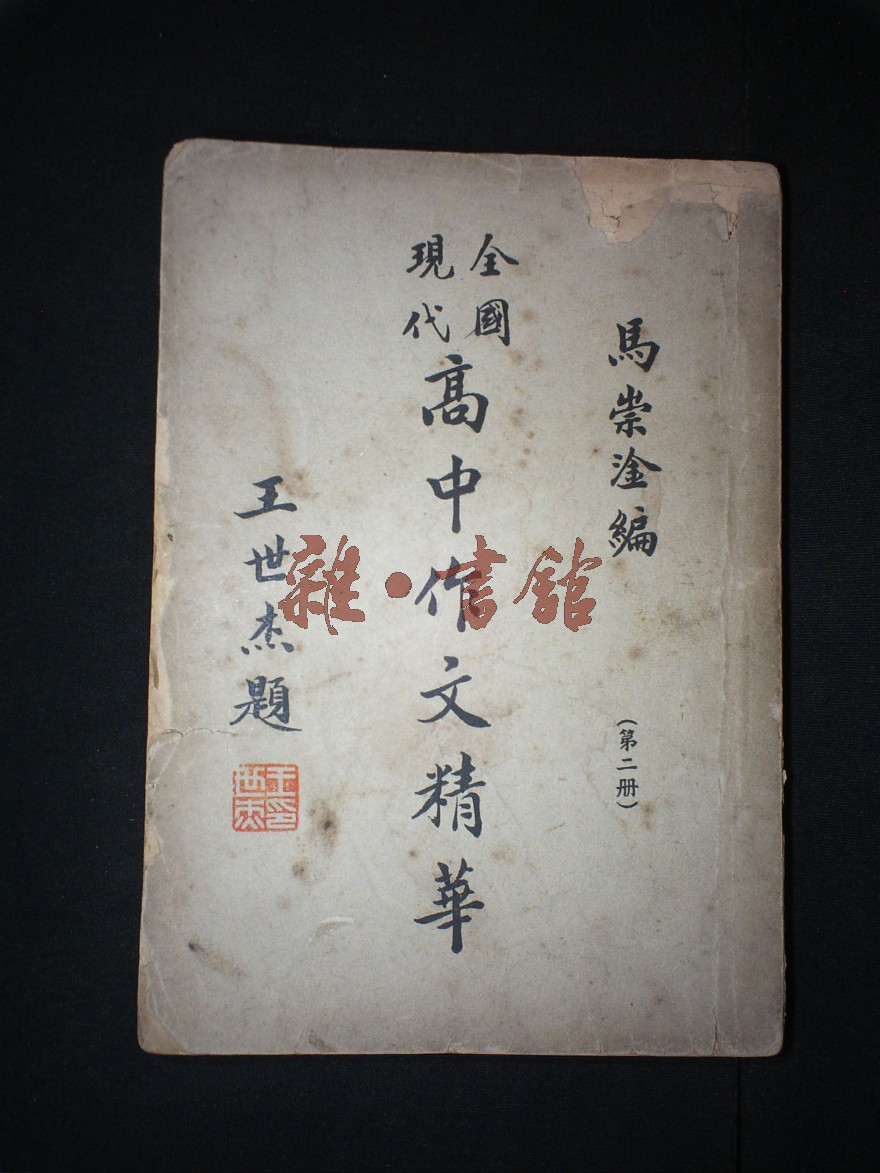 馬崇淦編
(第二册)
全國
現代
高中作文精華
王世杰題
王世杰印
雜·書館